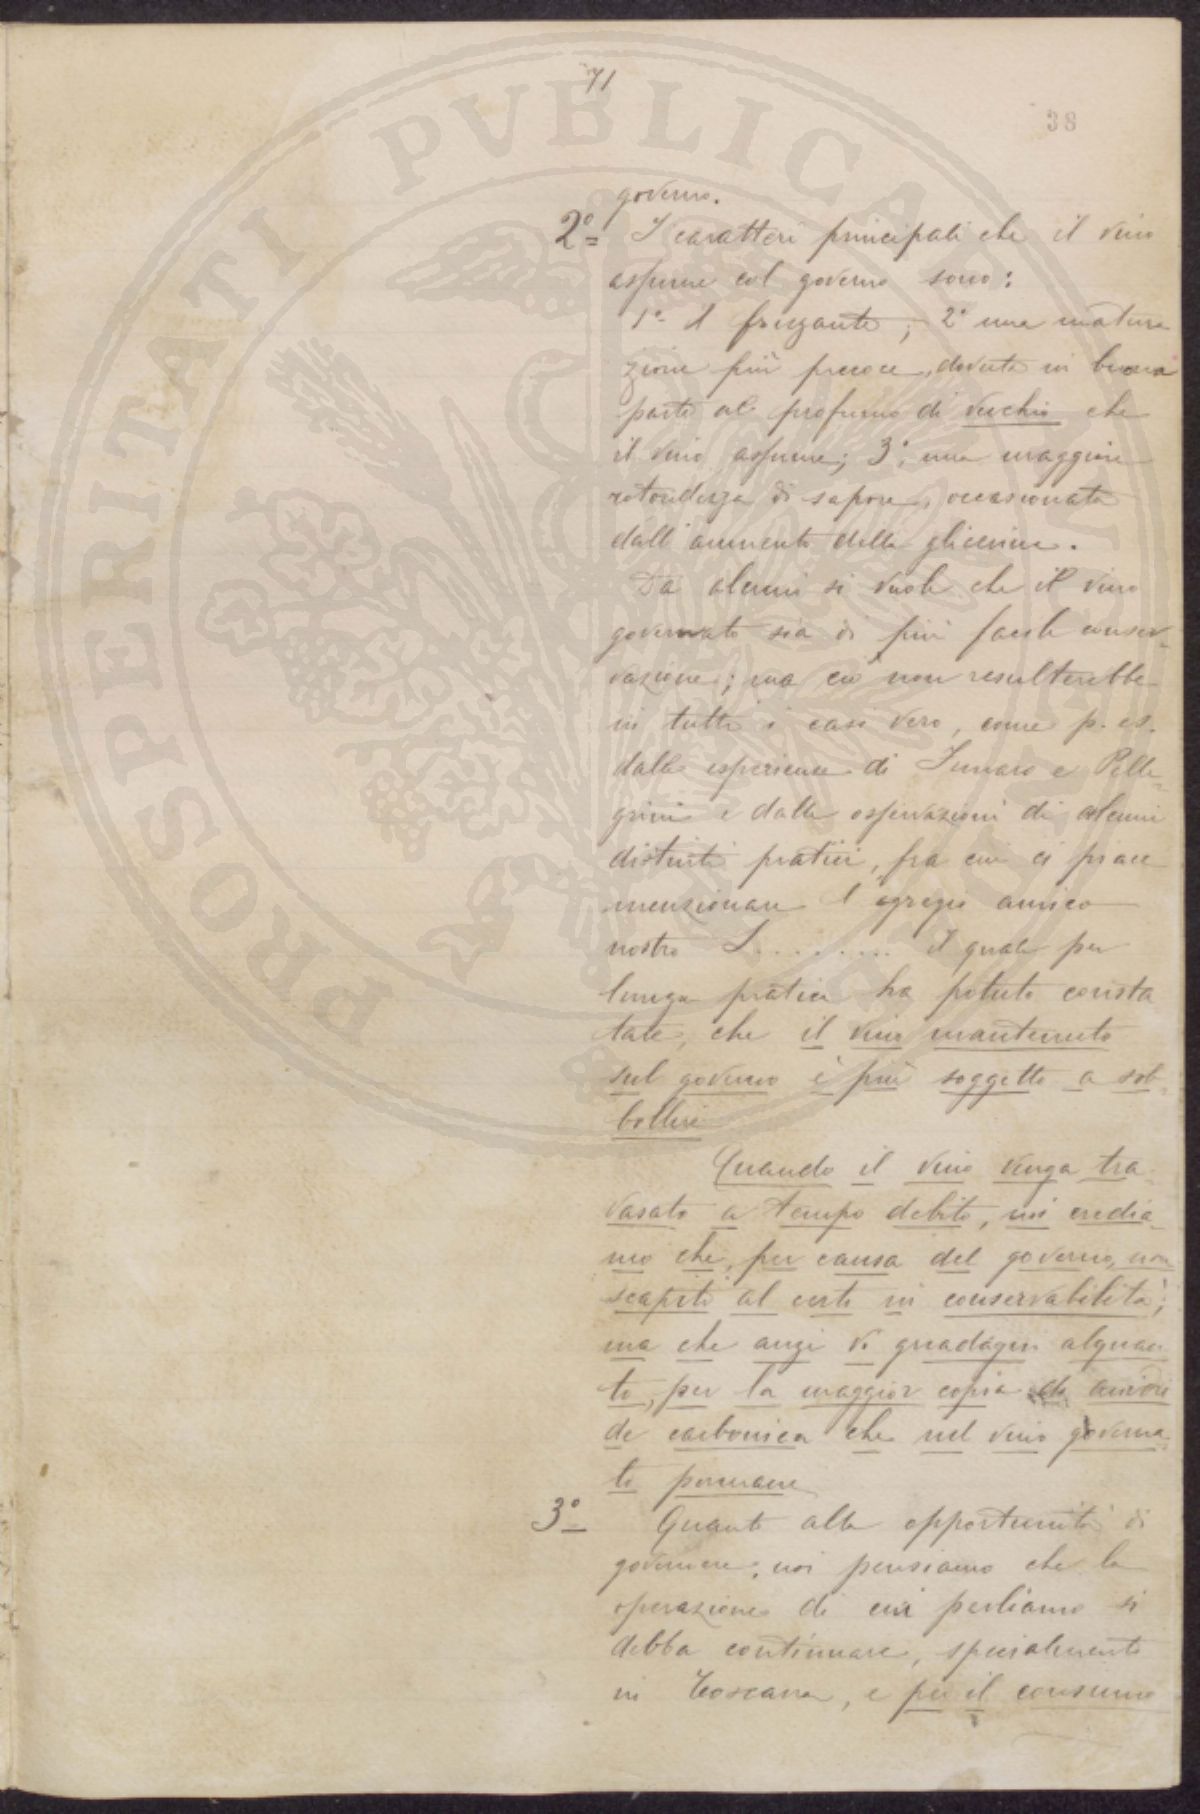 71
38
governo.
2º= I caratteri principali che il vino
assume col governo sono:
1º- il frizzante; 2º una matura
zione più precoce, dovuta in buona
parte al profumo di vecchio che
il vino assume; 3º, una maggiore
rotondezza di sapore, occasionata
dall'aumento della glicerina.
Da alcuni si vuole che il vino
governato sia di più facile conser-
vazione; ma ciò non resulterebbe
in tutti i casi vero, come p. es.
dalle esperienze di Funaro e Pelle-
grini e dalle osservazioni di alcuni
distinti pratici, fra cui ci piace
menzionare l'egregio amico
nostro L......... il quale per
lunga pratica ha potuto consta
tare, che il vino mantenuto
sul governo è più soggetto a sob-
bollire
Quando il vino venga tra-
vasato a tempo debito, noi credia-
mo che, per causa del governo, non
scapiti al certo in conservabilità;
ma che anzi vi guadagni alquan-
to, per la maggior copia di anidri
de carbonica che nel vino governa-
to permane
3º= Quanto alla opportunità di
governare, noi pensiamo che la
operazione di cui parliamo si
debba continuare, specialmente
in Toscana, e per il consumo
PROSPERITATI PVBLICAE